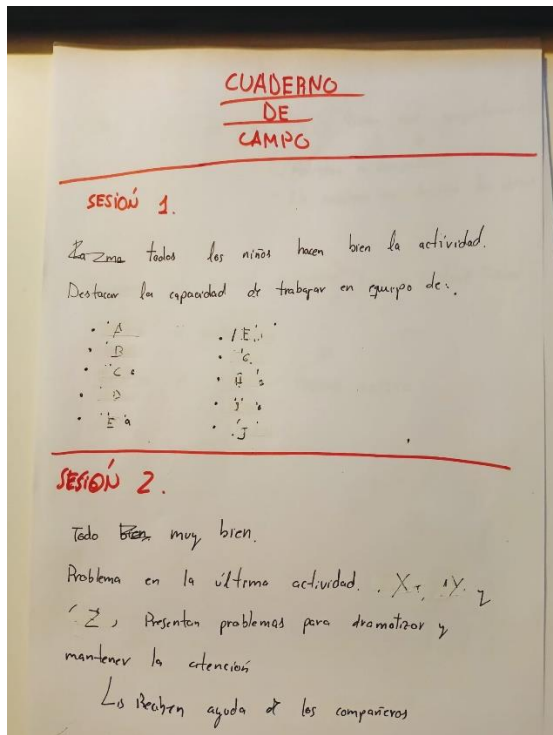 CUADERNO
DE
CAMPO
SESIÓN 1.
todos los niños hacen bien la actividad.
Destacar la capacidad de trabajar en equipo de:
• A
• B
• C
• D
• E
• E
• G
• H
• I
• J
SESIÓN 2.
Todo Bien muy bien.
Problema en la última actividad. X, Y y
Z, Presentan problemas para dramatizar y
mantener la atención
Reciben ayuda de los compañeros